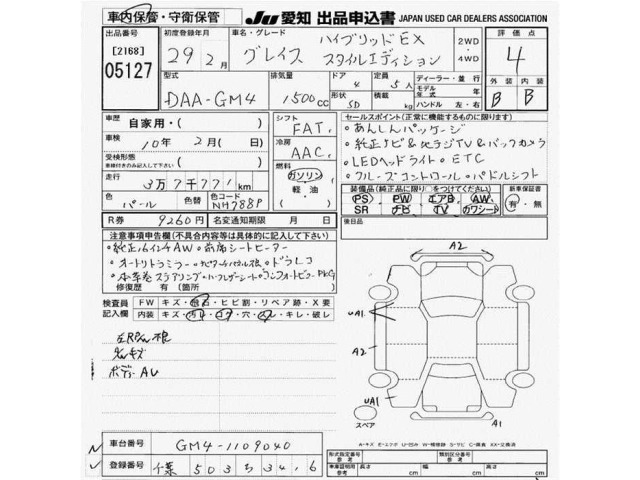 車内保管・守衛保管
JU 愛知 出品申込書 JAPAN USED CAR DEALERS ASSOCIATION
出品番号 [2168] 05127
初度登録年月 29年 2月
車名・グレード グレイス ハイブリッドEX スタイルエディション
2WD・4WD
評価点 4
外装 内装
B B
型式 DAA-GM4
排気量 1500cc
ドア 4
形状 SD
定員 5人
積載 kg
ディーラー・並行
モデル年式 年
ハンドル 左・右
車歴 自家用・( )
車検 10年 2月( 日)
受検形態 車検付きのみ記入して下さい
走行 3万7千771km
色 パール
色替 色コード NH788P
シフト FAT
冷房 AAC
燃料 ガソリン・軽油・( )
セールスポイント(正常に機能するものに限ります)
・あんしんパッケージ
・純正ナビ&地デジTV&バックカメラ
・LEDヘッドライト・ETC
・クルーズコントロール・パドルシフト
装備品(純正品に限り○をつけてください)
PS PW エアB AW
SR ナビ TV カワシート
新車保証書 有・無
R券 9260円 名変通知期限 月 日
後日品
注意事項申告欄(不具合内容等は具体的に記入して下さい)
・純正16インチAW・前席シートヒーター
・オートリトラミラー・ナビタッチパネル痕・ドラレコ
・本革巻ステアリング・ハーフレザーシート・コンフォートビューPKG
修復歴 有 (箇所 )
検査員記入欄
FW キズ・飛石・ヒビ割・リペア跡・X要
内装 キズ・汚れ・コゲ・穴・スレ・キレ・破レ
ボディAU
A2
UA1
A2
UA1
A1
スペア
A-キズ E-エクボ U-凹み W-補修跡 S-サビ C-腐食 XX-交換済
車台番号 GM4-1109040
登録番号 千葉 503 ち 34,6
形式指定番号 類別区分番号
車車証明用記載 長さ cm 幅 cm 高さ cm